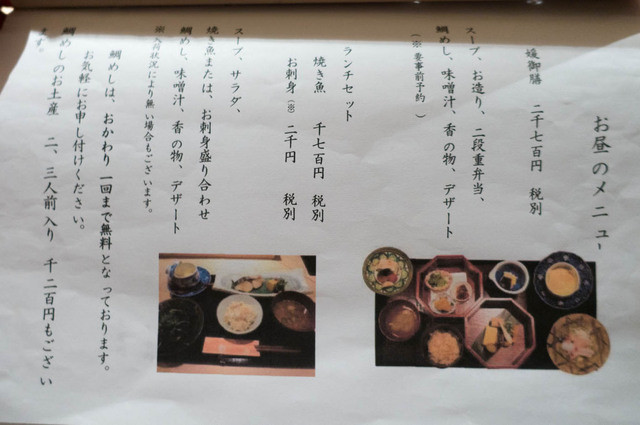 お昼のメニュー
媛御膳　二千七百円　税別
スープ、お造り、二段重弁当、
鯛めし、味噌汁、香の物、デザート
（※要事前予約　）
ランチセット
焼き魚　千七百円　税別
お刺身（※）二千円　税別
スープ、サラダ、
焼き魚または、お刺身盛り合わせ
鯛めし、味噌汁、香の物、デザート
※入荷状況により無い場合もございます。
鯛めしは、おかわり一回まで無料となっております。
お気軽にお申し付けください。
鯛めしのお土産　二、三人前入り　千二百円もござい
ます。